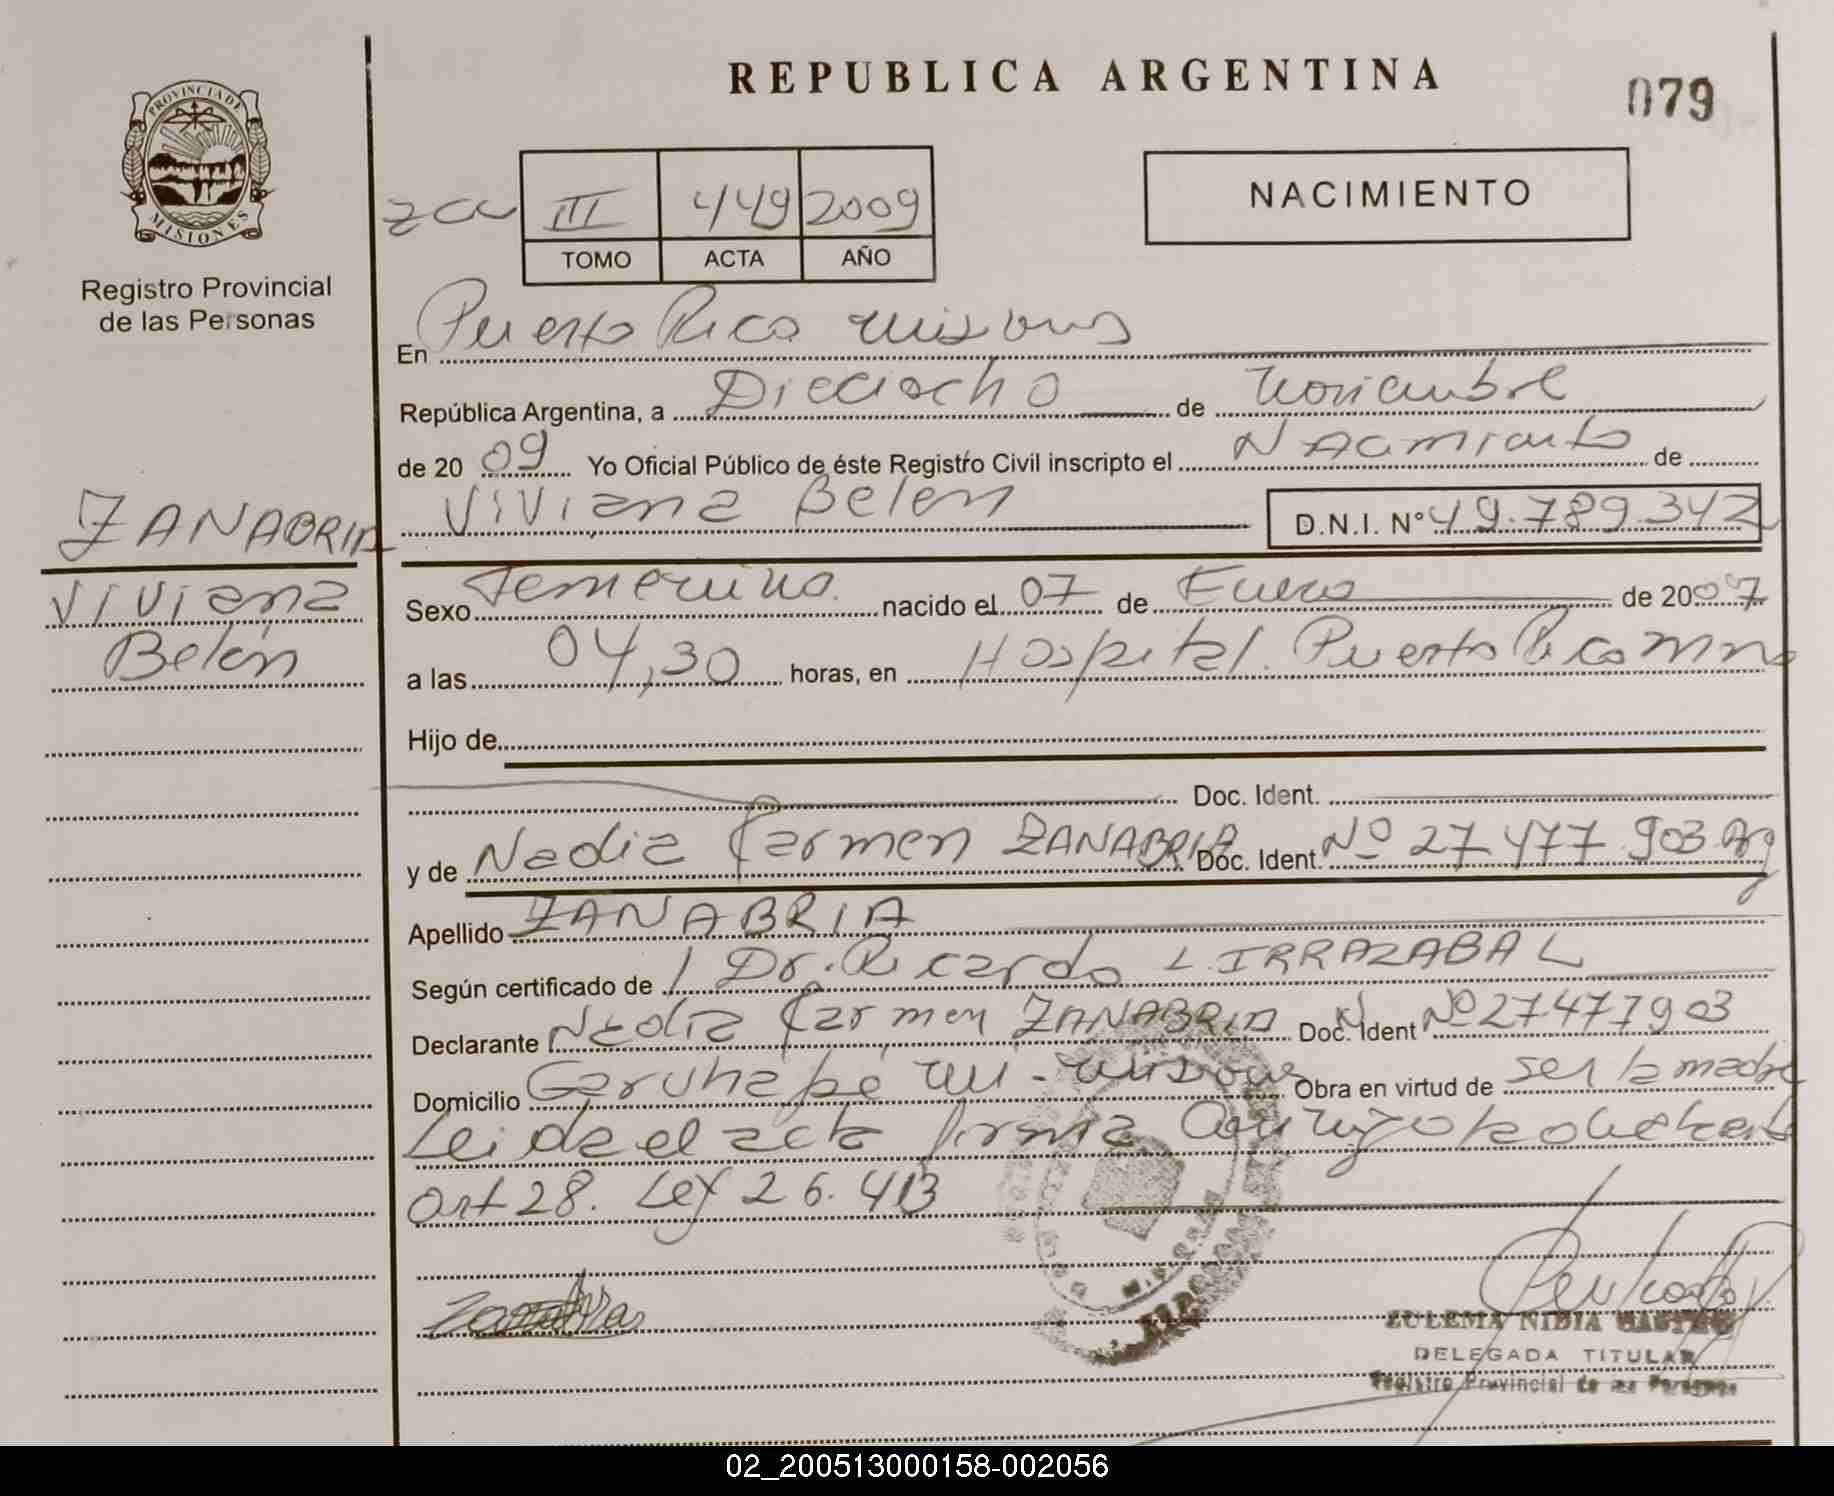 REPUBLICA ARGENTINA
079
PROVINCIA DE
MISIONES
Registro Provincial
de las Personas
NACIMIENTO
za III 449 2009
TOMO ACTA AÑO
En Puerto Rico misiones
República Argentina, a Dieciocho de noviembre
de 2009 Yo Oficial Público de éste Registro Civil inscripto el Nacimiento de
Viviana Belen D.N.I. N° 49.789.342
ZANABRIA
Viviana
Belén
Sexo Femenino nacido el 07 de Enero de 2007
a las 04,30 horas, en Hospital. Puerto Rico Mnes
Hijo de
Doc. Ident.
y de Nadia Carmen ZANABRIA Doc. Ident Nº 27.477.903 Arg
Apellido ZANABRIA
Según certificado de Dr. Ricardo L. IRRAZABAL
Declarante Nadia Carmen ZANABRIA Doc. Ident Nº 27477903
Domicilio Garuhapé mi - misiones Obra en virtud de ser la madre
Leida el acta firma
Art 28. Ley 26.413
ZULEMA NIDIA
DELEGADA TITULAR
Registro Provincial de las Personas
02_200513000158-002056